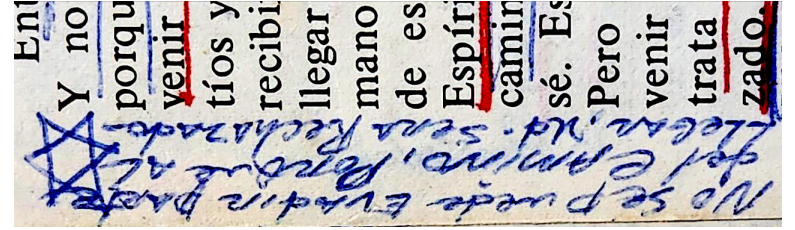 Ent
Y no
porqu
venir
tíos y
recibi
llegar
mano
de es
Espíri
camin
sé. Es
Pero
venir
trata
zado.
No se puede Evadir parte
del Camino, Porque al
Ud. Sera Rechazado-